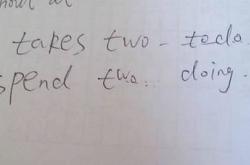 takes two - todo
spend two... doing.